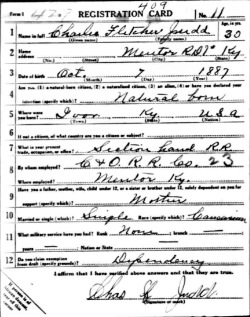 Form 1 REGISTRATION CARD 409 No. 11
1 Name in full Charlie Fletcher Judd Age in yrs. 30
(Given name) (Family name)
2 Home address Mentor R.D. 1 Ky
3 Date of birth Oct. 7 1887
(Month) (Day) (Year)
4 Are you (1) a natural-born citizen, (2) a naturalized citizen, (3) an alien, (4) or have you declared your
intention (specify which)? Natural born
5 Where were you born? Ivor Ky USA
6 If not a citizen, of what country are you a citizen or subject?
7 What is your present trade, occupation, or office? Section hand RR
8 By whom employed? C & O. R. R. Co. 23
Where employed? Mentor Ky.
9 Have you a father, mother, wife, child under 12, or a sister or brother under 12, solely dependent on you for
support (specify which)? Mother
10 Married or single (which)? Single Race (specify which)? Caucasian
11 What military service have you had? Rank None ; branch
years Nation or State
12 Do you claim exemption from draft (specify grounds)? Dependency
I affirm that I have verified above answers and that they are true.
Chas F Judd
(Signature or mark)